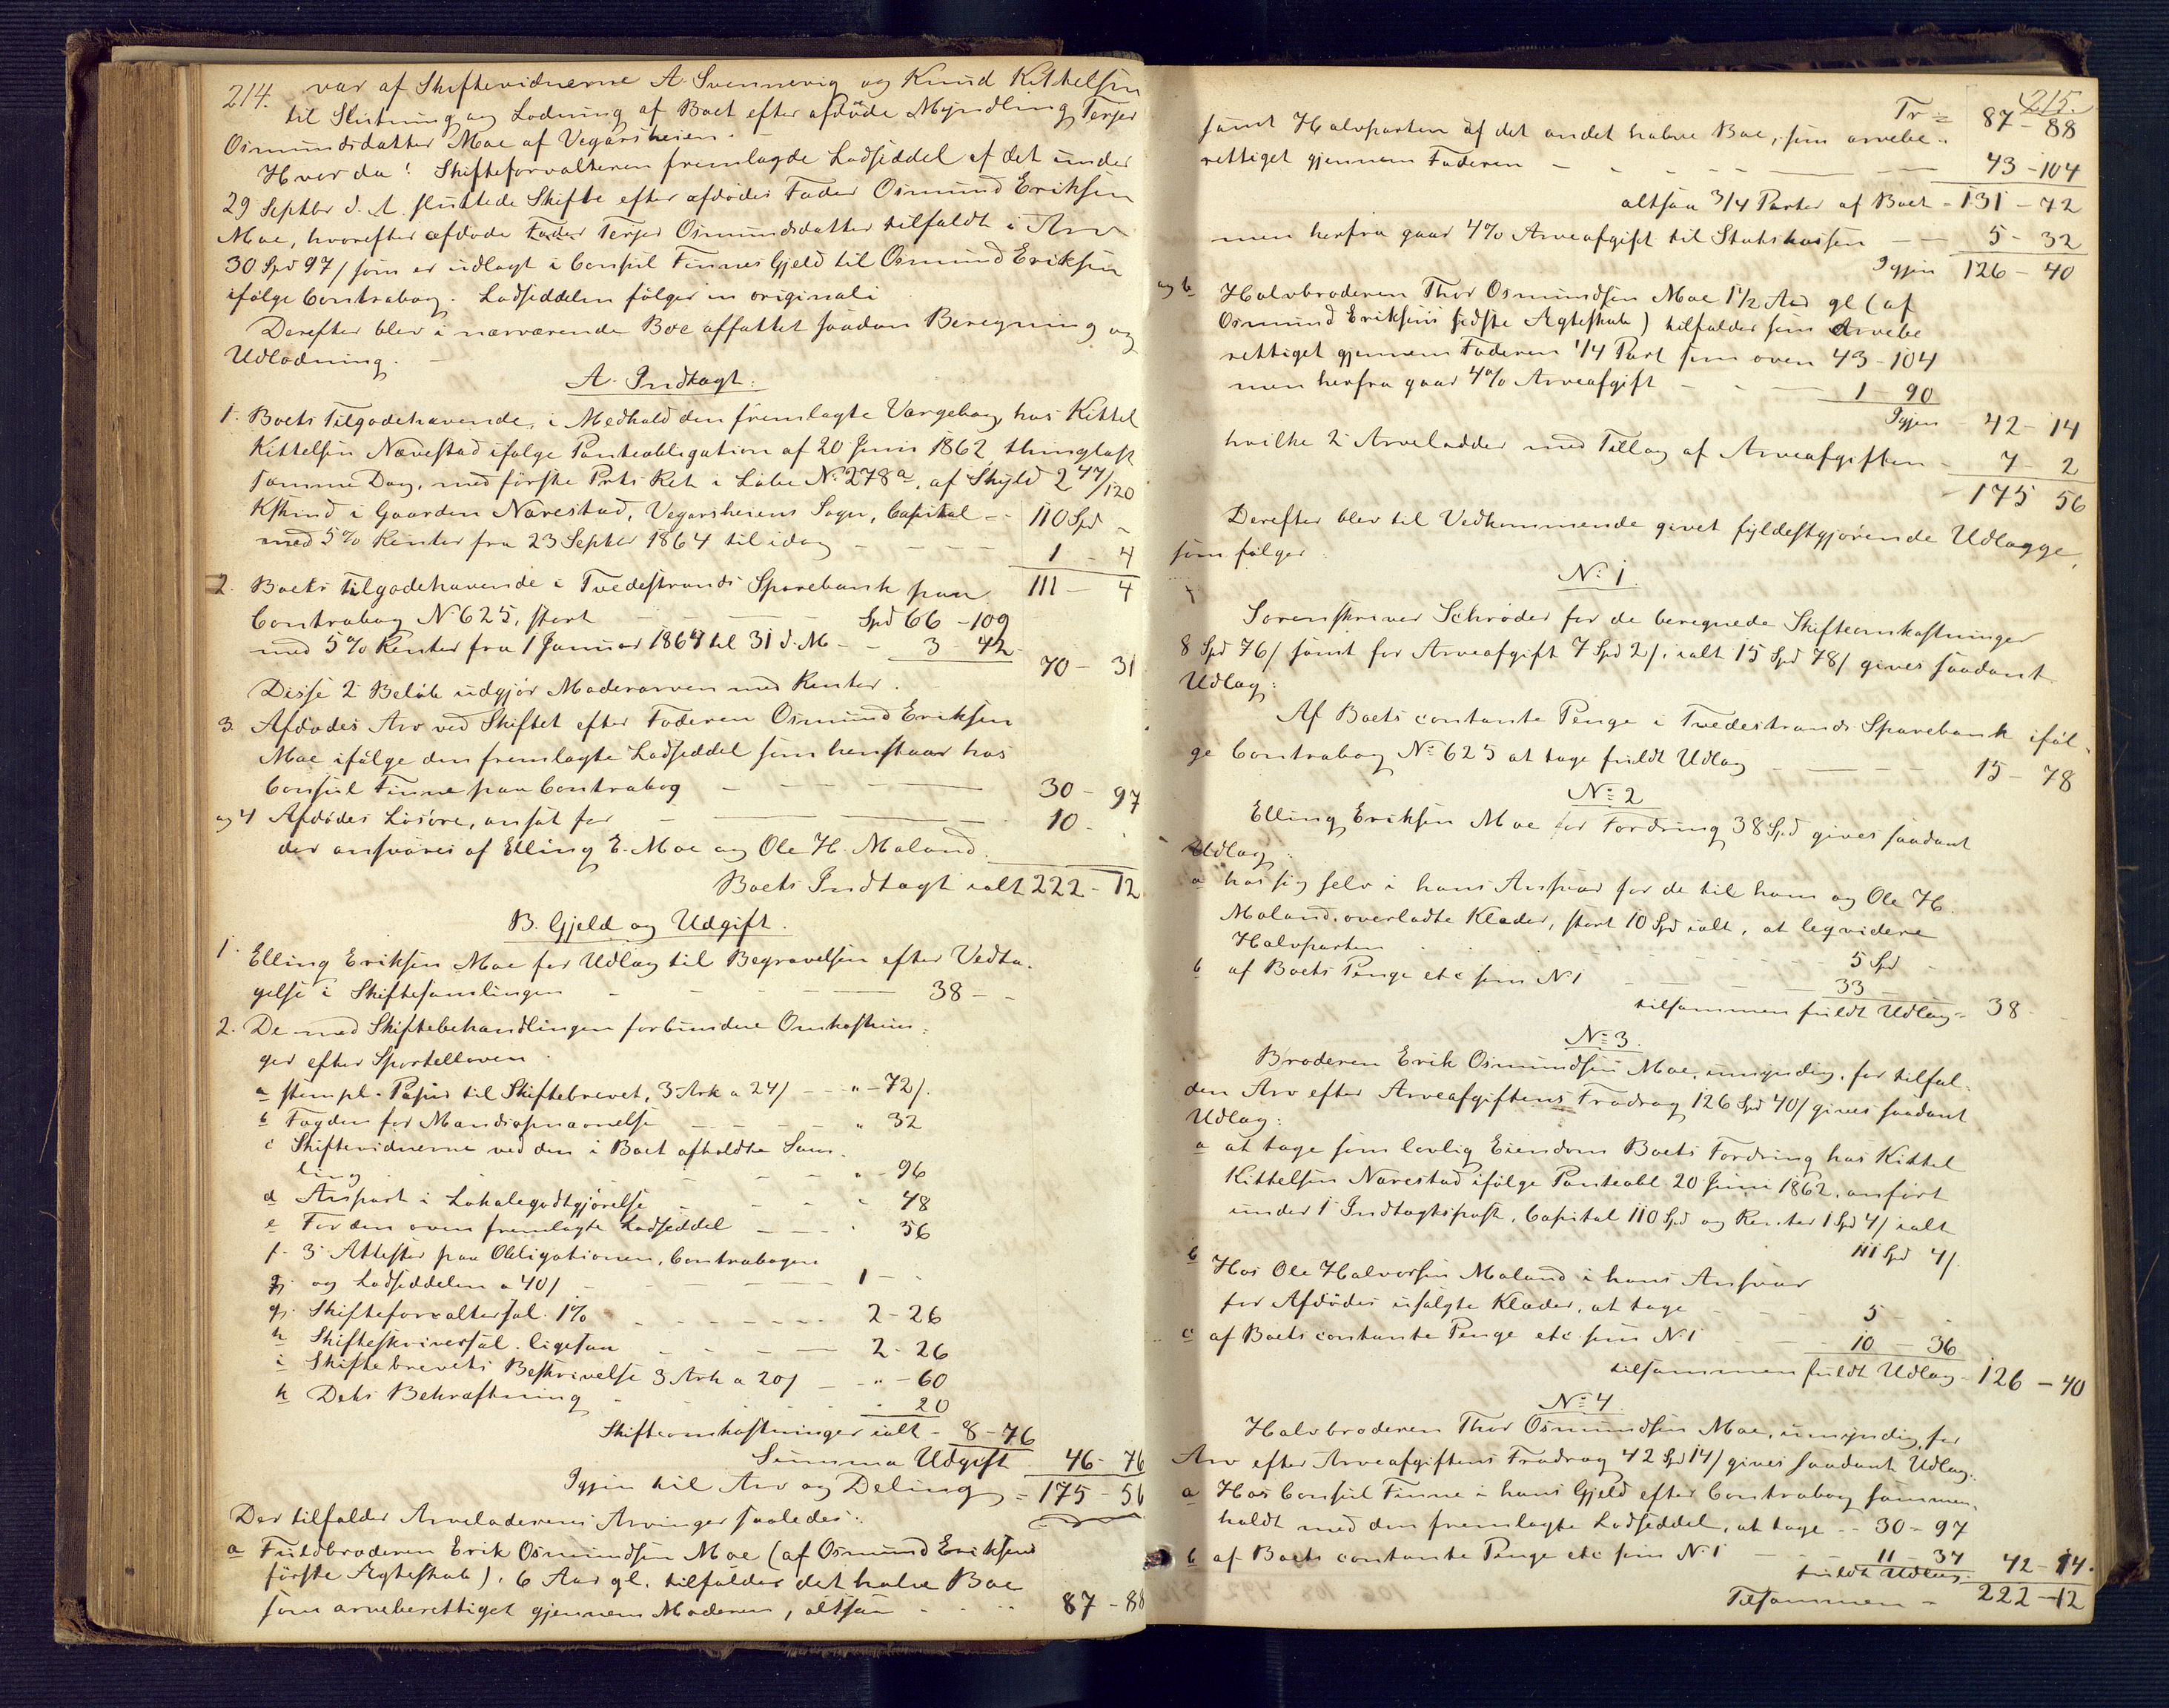 214.
var af Skiftevidnerne A. Svennevig og Knud Kittelsen
til Slutning og Lodning af Boet efter afdøde Myndling Terjer
Osmundsdatter Moe af Vegarsheien.
Hvor da! Skifteforvalteren fremlagde Lodseddel af det under
29 Septbr d. A. sluttede Skifte efter afdødes Fader Osmund Eriksen
Moe, hvorefter afdøde Fader Terjer Osmundsdatter tilfaldt i Arv
30 Spd 97/ som er udlagt i Consul Finnes Gjeld til Osmund Eriksen
ifølge Contrabog. Lodseddelen følger in originali
Derefter blev i nærværende Boe affattet saadan Beregning og
Udlodning.
A. Indtægt:
1. Boets Tilgodehavende, i Medhold den fremlagte Værgebog, hos Kittel
Kittelsen Nævestad ifølge Panteobligation af 20 Juni 1862, thinglæst
samme Dag, med første Prts Ret i Løbe No 278a, af Skyld 2 47/120
Kskind i Gaarden Nævestad, Vegarsheiens Sogn, Capital - - 110 Spd -
med 5% Renter fra 23 Septbr 1864 til idag - - - - 1 - 4
111 - 4
2. Boets tilgodehavende i Tvedestrands Sparebank paa
Contrabog No 625, stort - - - Spd 66 - 109
med 5% Renter fra 1 Januar 1864 til 31 d. M - - 3 - 42
70 - 31
Disse 2 Beløb udgjør Moderarven med Renter.
3. Afdødes Arv ved Skiftet efter Faderen Osmund Eriksen
Moe ifølge den fremlagte Lodseddel som henstaar hos
Consul Finne paa Contrabog - - - 30 - 97
og 4 Afdødes Løsøre, ansat for - - - 10 -
der ansvares af Elling E. Moe og Ole H. Moland.
Boets Indtægt ialt 222 - 12
B. Gjeld og Udgift.
1. Elling Eriksen Moe for Udlæg til Begravelsen efter Vedta-
gelse i Skiftesamlingen - - - 38 - -
2. De med Skiftebehandlingen forbundne Omkostnin-
ger efter Sportelloven.
a stempl. Papir til Skiftebrevet, 3 Ark a 24/ - - " - 72/.
b Fogden for Mandsopnævnelse - - - " 32
c Skiftevidnerne ved den i Boet afholdte Sam-
ling - - - " - 96
d Anpart i Lokalegodtgjørelse - - - " 48
e For den oven fremlagte Lodseddel - - - " 56
f. 3 Attester paa Obligationen, Contrabogen
og Lodseddelen a 40/ - - - 1 - -
g. Skifteforvaltersal. 1% - - - 2 - 26
h Skifteskriversal. ligesaa - - - 2 - 26
i Skiftebrevets Beskrivelse 3 Ark a 20/ - - " - 60
k Dets Bekræftning - - - " 20
Skifteomkostninger ialt - 8 - 76
Summa Udgift 46 - 76
Igjen til Arv og Deling = 175 - 56
Der tilfalder Arveladerens Arvinger saaledes:
a Fuldbroderen Erik Osmundsen Moe (af Osmund Eriksens
første Ægteskab), 6 Aar gl. tilfalder det halve Boe
som arveberettiget gjennem Moderen, altsaa - - - 87 - 88
215.
Tr = 87 - 88
samt Halvparten af det andet halve Boe, som arvebe-
rettiget gjennem Faderen - - - 43 - 104
altsaa 3/4 Parter af Boet - 131 - 72
men herfra gaar 4% Arveafgift til Statskassen - - 5 - 32
Igjen 126 - 40
og b Halvbroderen Thor Osmundsen Moe 1 1/2 Aar gl (af
Osmund Eriksens sidste Ægteskab) tilfalder som Arvebe
rettiget gjennem Faderen 1/4 Part som oven 43 - 104
men herfra gaar 4% Arveafgift - - - 1 - 90
Igjen - 42 - 14
hvilke 2 Arvelodder med Tillæg af Arveafgiften - 7 - 2
- 175 56
Derefter blev til Vedkommende givet fyldestgjørende Udlægge,
som følger:
No 1.
Sorenskriver Schrøder for de beregnede Skifteomkostninger
8 Spd 76/ samt for Arveafgift 7 Spd 2/, ialt 15 Spd 78/ gives saadant
Udlæg:
Af Boets contante Penge i Tvedestrands Sparebank iføl-
ge Contrabog No 625 at tage fuldt Udlæg - - - 15 - 78
No 2
Elling Eriksen Moe for Fordring 38 Spd gives saadant
Udlæg:
a hos sig selv i hans Ansvar for de til ham og Ole H.
Moland overladte Klæder, stort 10 Spd ialt, at leqvidere
Halvparten - - - 5 Spd -
b af Boets Penge etc som No 1 - - - 33 - -
tilsammen fuldt Udlæg = 38 -
No 3.
Broderen Erik Osmundsen Moe, umyndig, for tilfal-
den Arv efter Arveafgiftens Fradrag 126 Spd 40/ gives saadant
Udlæg:
a at tage som lovlig Eiendom Boets Fordring hos Kittel
Kittelsen Nævestad ifølge Panteobl 20 Juni 1862, anført
under 1 Indtægtspost, Capital 110 Spd og Renter 1 Spd 4/ ialt
111 Spd 4/.
b Hos Ole Halvorsen Moland i hans Ansvar
for Afdødes usolgte Klæder, at tage - - - 5 -
c af Boets contante Penge etc som No 1 - - 10 - 36
tilsammen fuldt Udlæg - 126 - 40
No 4
Halvbroderen Thor Osmundsen Moe, umyndig, for
Arv efter Arveafgiftens Fradrag 42 Spd 14/ gives saadant Udlæg:
a Hos Consul Finne i hans Gjeld efter Contrabog sammen-
holdt med den fremlagte Lodseddel, at tage - - 30 - 97
b af Boets contante Penge etc som No 1 - - - 11 - 37
fuldt Udlæg. 42 - 14.
Tilsammen - 222 - 12